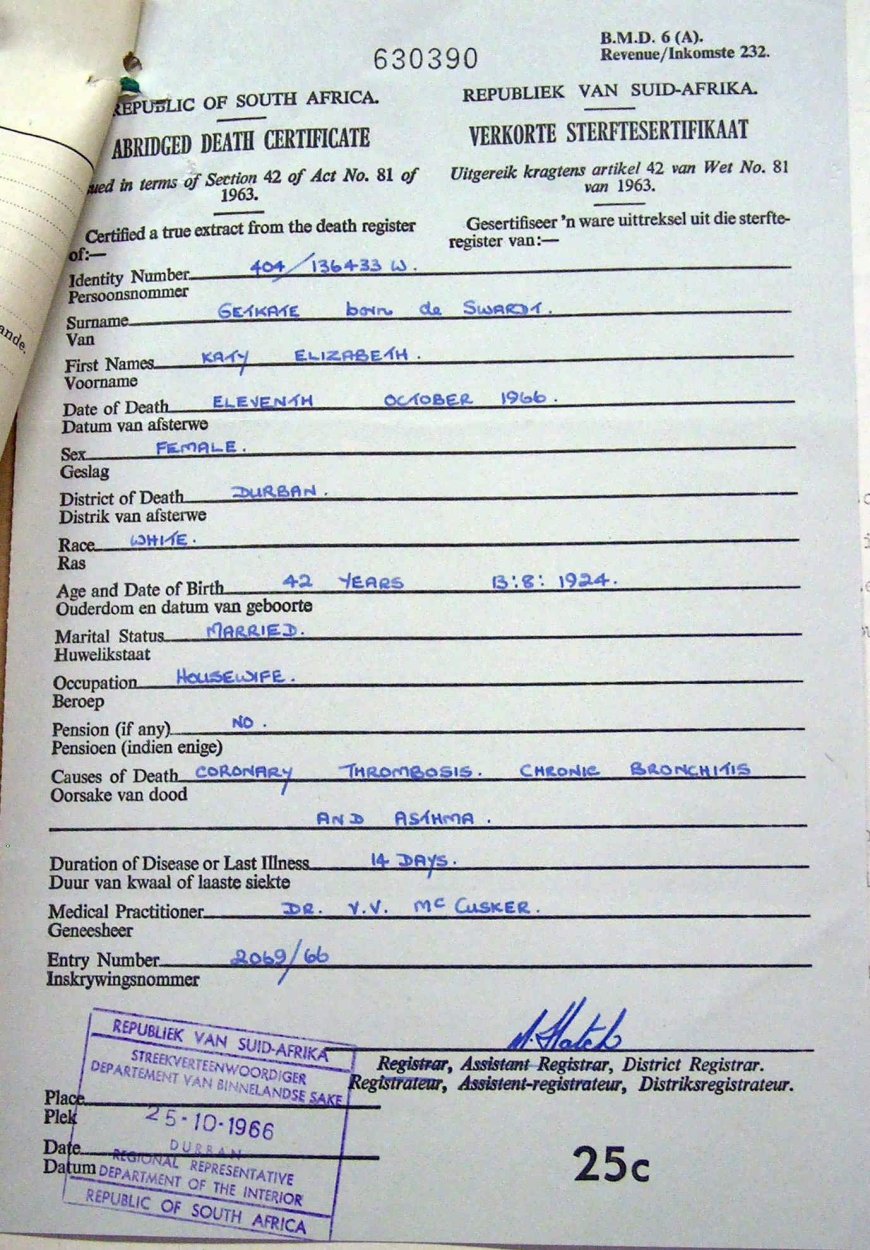 B.M.D. 6 (A).
630390
Revenue/Inkomste 232.
REPUBLIC OF SOUTH AFRICA.
ABRIDGED DEATH CERTIFICATE
ued in terms of Section 42 of Act No. 81 of
1963.
Certified a true extract from the death register
of:—
REPUBLIEK VAN SUID-AFRIKA.
VERKORTE STERFTESERTIFIKAAT
Uitgereik kragtens artikel 42 van Wet No. 81
van 1963.
Gesertifiseer 'n ware uittreksel uit die sterfte-
register van:—
Identity Number 404/136433 W.
Persoonsnommer
Surname GETKATE born de SWARDT.
Van
First Names KATY ELIZABETH.
Voorname
Date of Death ELEVENTH OCTOBER 1966.
Datum van afsterwe
Sex FEMALE.
Geslag
District of Death DURBAN.
Distrik van afsterwe
Race WHITE.
Ras
Age and Date of Birth 42 YEARS 13:8:1924.
Ouderdom en datum van geboorte
Marital Status MARRIED.
Huwelikstaat
Occupation HOUSEWIFE.
Beroep
Pension (if any) NO.
Pensioen (indien enige)
Causes of Death CORONARY THROMBOSIS. CHRONIC BRONCHITIS
Oorsake van dood
AND ASTHMA.
Duration of Disease or Last Illness 14 DAYS.
Duur van kwaal of laaste siekte
Medical Practitioner DR. V.V. McCUSKER.
Geneesheer
Entry Number 2069/66
Inskrywingsnommer
Registrar, Assistant Registrar, District Registrar.
Registrateur, Assistent-registrateur, Distriksregistrateur.
Place
Plek
Date
Datum
REPUBLIEK VAN SUID-AFRIKA
STREEKVERTEENWOORDIGER
DEPARTEMENT VAN BINNELANDSE SAKE
25-10-1966
DURBAN
REGIONAL REPRESENTATIVE
DEPARTMENT OF THE INTERIOR
REPUBLIC OF SOUTH AFRICA
25c
ande.